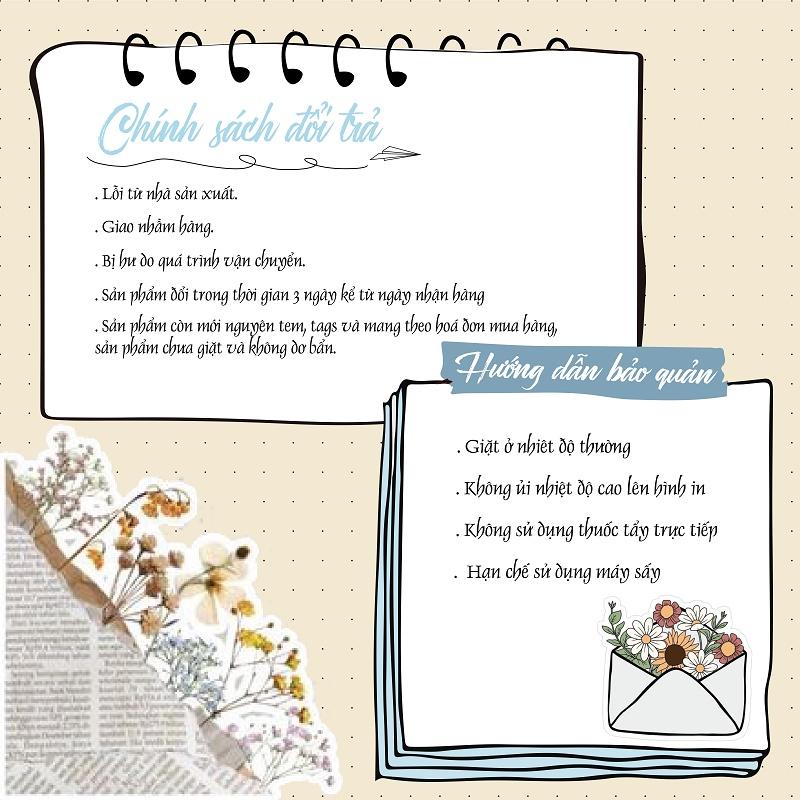 Chính sách đổi trả
. Lỗi từ nhà sản xuất.
. Giao nhầm hàng.
. Bị hư do quá trình vận chuyển.
. Sản phẩm đổi trong thời gian 3 ngày kể từ ngày nhận hàng
. Sản phẩm còn mới nguyên tem, tags và mang theo hoá đơn mua hàng,
sản phẩm chưa giặt và không dơ bẩn.
Hướng dẫn bảo quản
. Giặt ở nhiêt độ thường
. Không ủi nhiệt độ cao lên hình in
. Không sử dụng thuốc tẩy trực tiếp
. Hạn chế sử dụng máy sấy